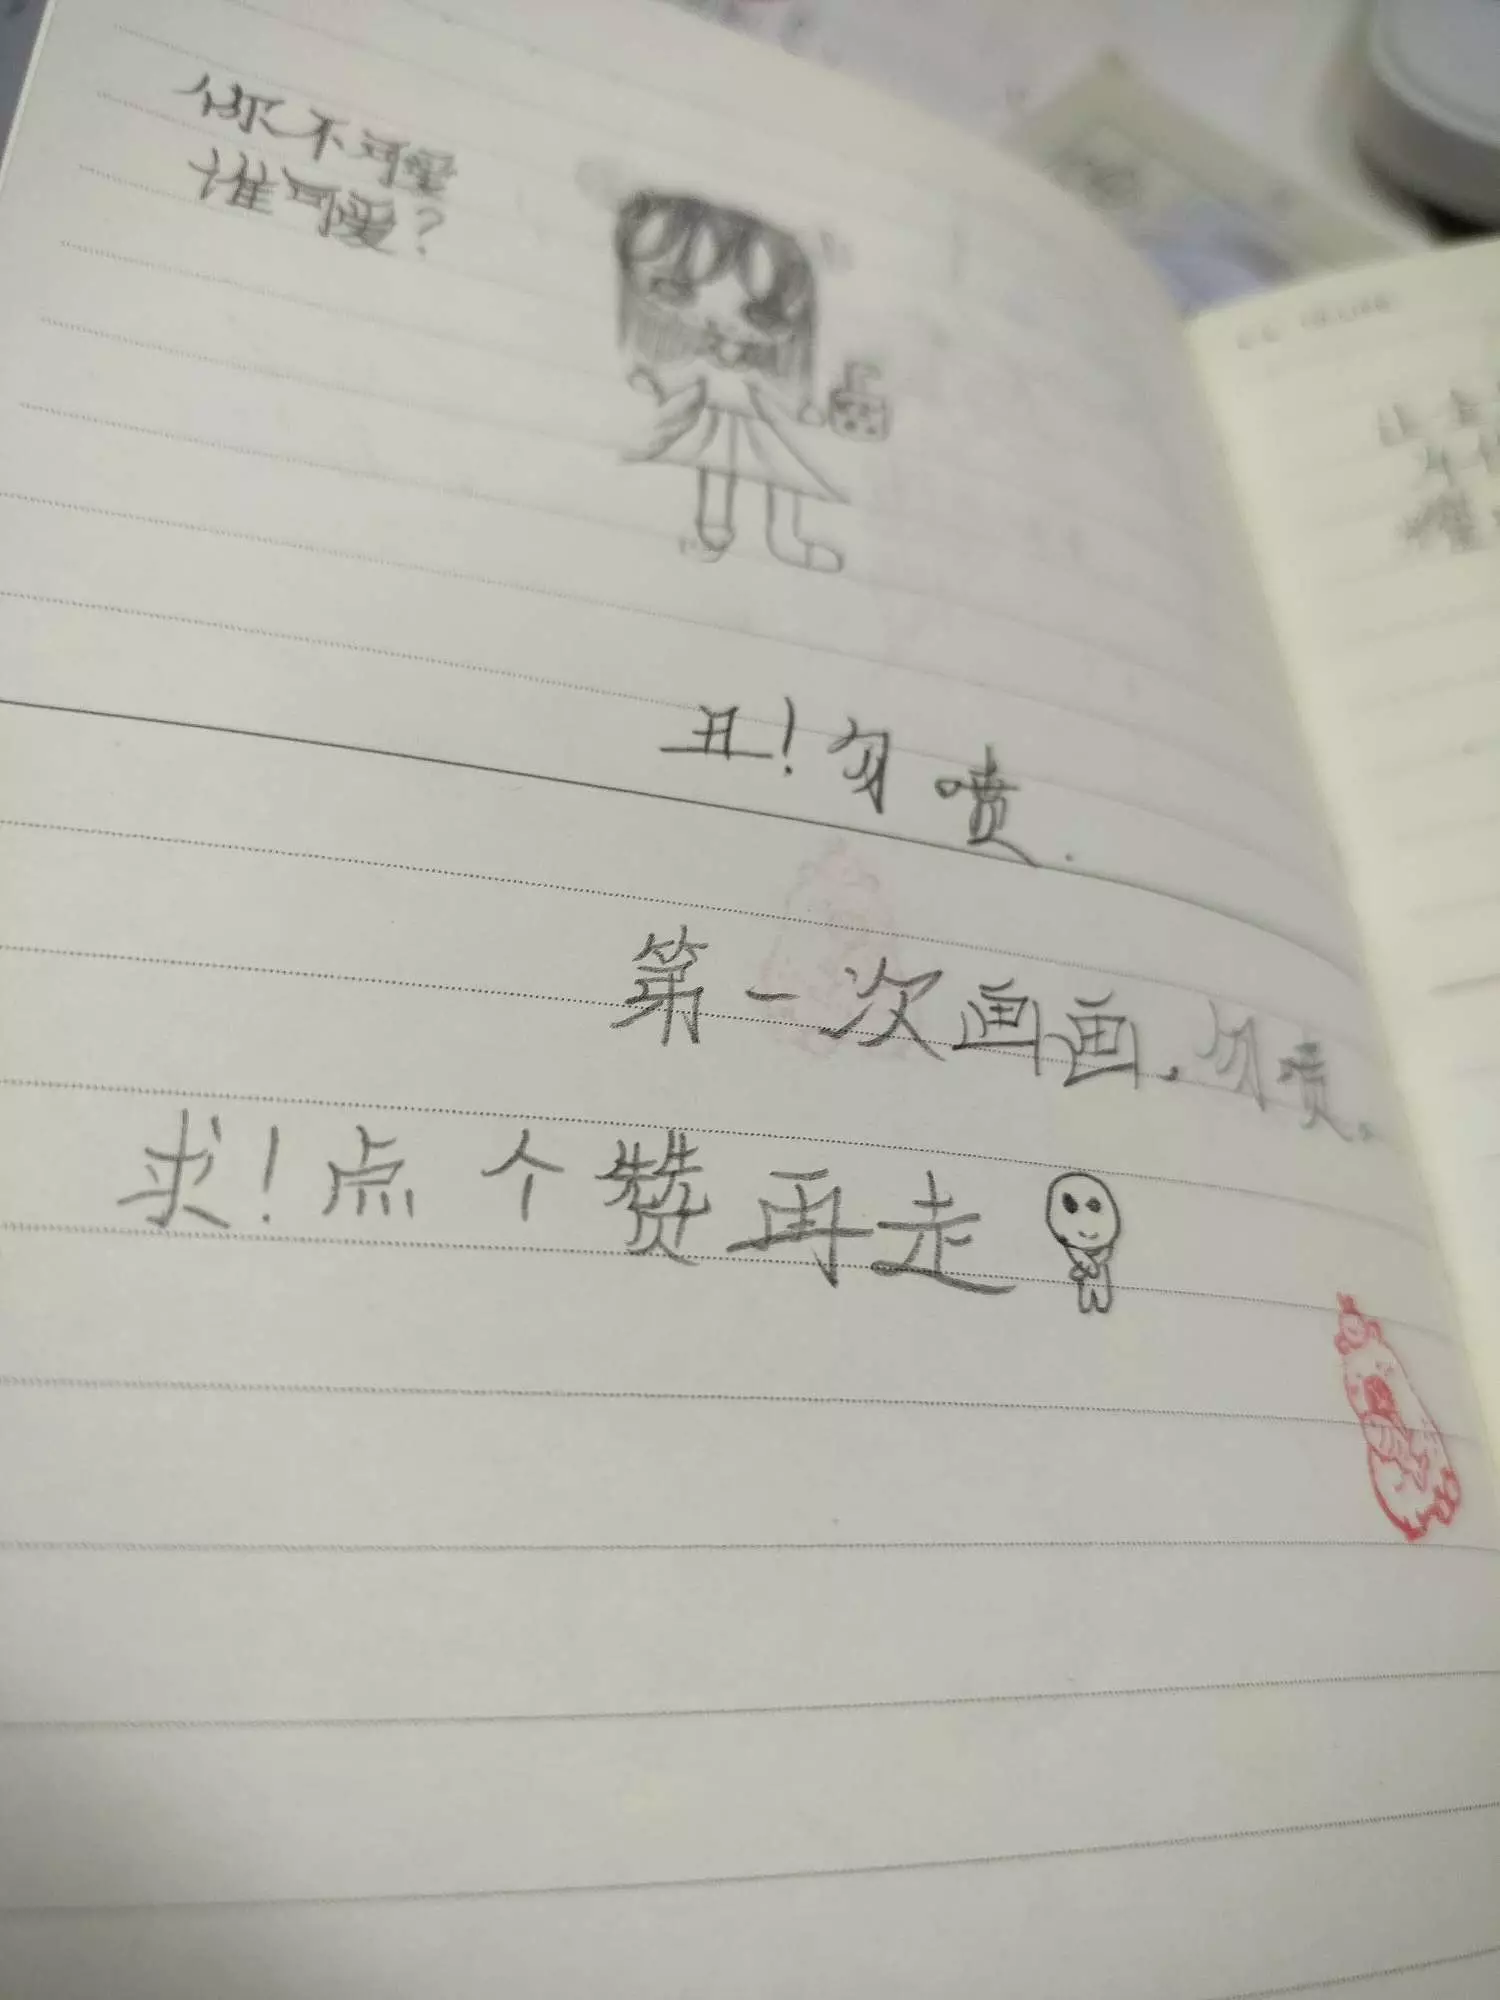 你不可爱
谁可爱?
丑!勿喷.
第一次画画,勿喷。
求!点个赞再走